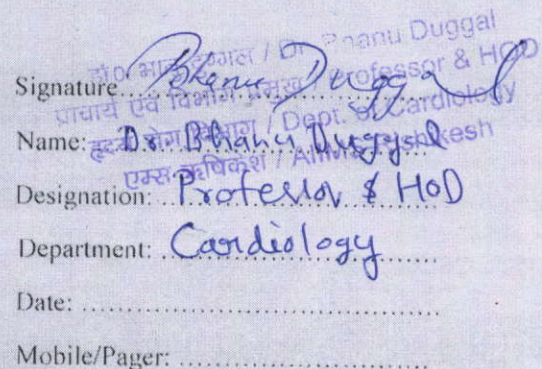 डॉ० भानु दुग्गल / Dr. Bhanu Duggal
प्राचार्य एवं विभाग प्रमुख / Professor & HOD
हृदय रोग विभाग / Dept. of Cardiology
एम्स ऋषिकेश / AIIMS Rishikesh
Signature... Bhanu Duggal
Name: Dr. Bhanu Duggal
Designation: Professor & HoD
Department: Cardiology
Date: ..........................................
Mobile/Pager: .............................